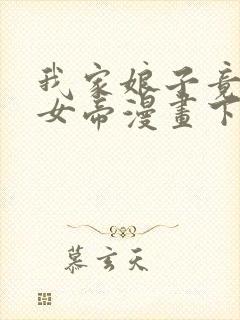 我家娘子竟
女帝漫畫下
慕玄天